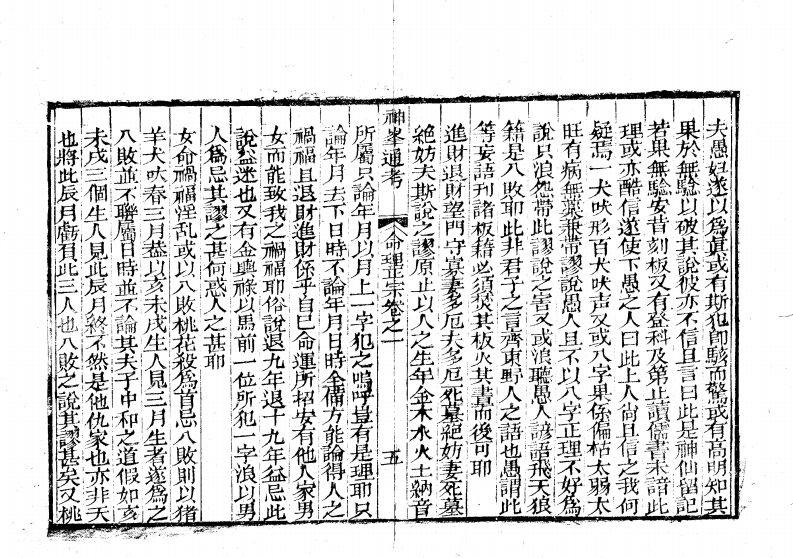 夫愚妇遂以為真或有斯犯即駭而驚或有高明知其
果於無驗以破其說彼亦不信且言曰此是神仙留記
若果無驗安昔刻板又有登科及第止讀儒書未諳此
理或亦酷信遂使下愚之人曰此上人尚且信之我何
疑焉一犬吠形百犬吠声又或八字果係偏枯太弱太
旺有病無藥兼帶謬說愚人且不以八字正理不好為
說只浪怨帶此謬說之害又或浪聽愚人諺語飛天狼
籍是八敗耶此非君子之言齊東野人之語也愚謂此
等妄語刊諸板籍必須焚其板火其書而後可耶
進財退財望門守寡妻多厄夫多厄死墓絕妨妻死墓
絕妨夫斯說之謬原止以人之生年金木水火土納音
神峯通考
命理正宗卷之一
五
所屬只論年月以月上一字犯之嗚呼豈有是理耶只
論年月去下日時不論年月日時全備方能論得人之
禍福且退財進財係乎自己命運所招安有他人家男
女而能致我之禍福耶俗說退九年退十九年益忌此
說益迷也又有金輿祿以馬前一位所犯一字浪以男
人為忌其謬之甚何惑人之甚耶
女命禍福淫乱或以八敗桃花殺為首忌八敗則以猪
羊犬吠春三月葢以亥未戌生人見三月生者遂為之
八敗並不聯屬日時並不論其夫子中和之道假如亥
未戌三個生人見此辰月終不然是他仇家也亦非天
也將此辰月虧負此三人也八敗之說其謬甚矣又桃